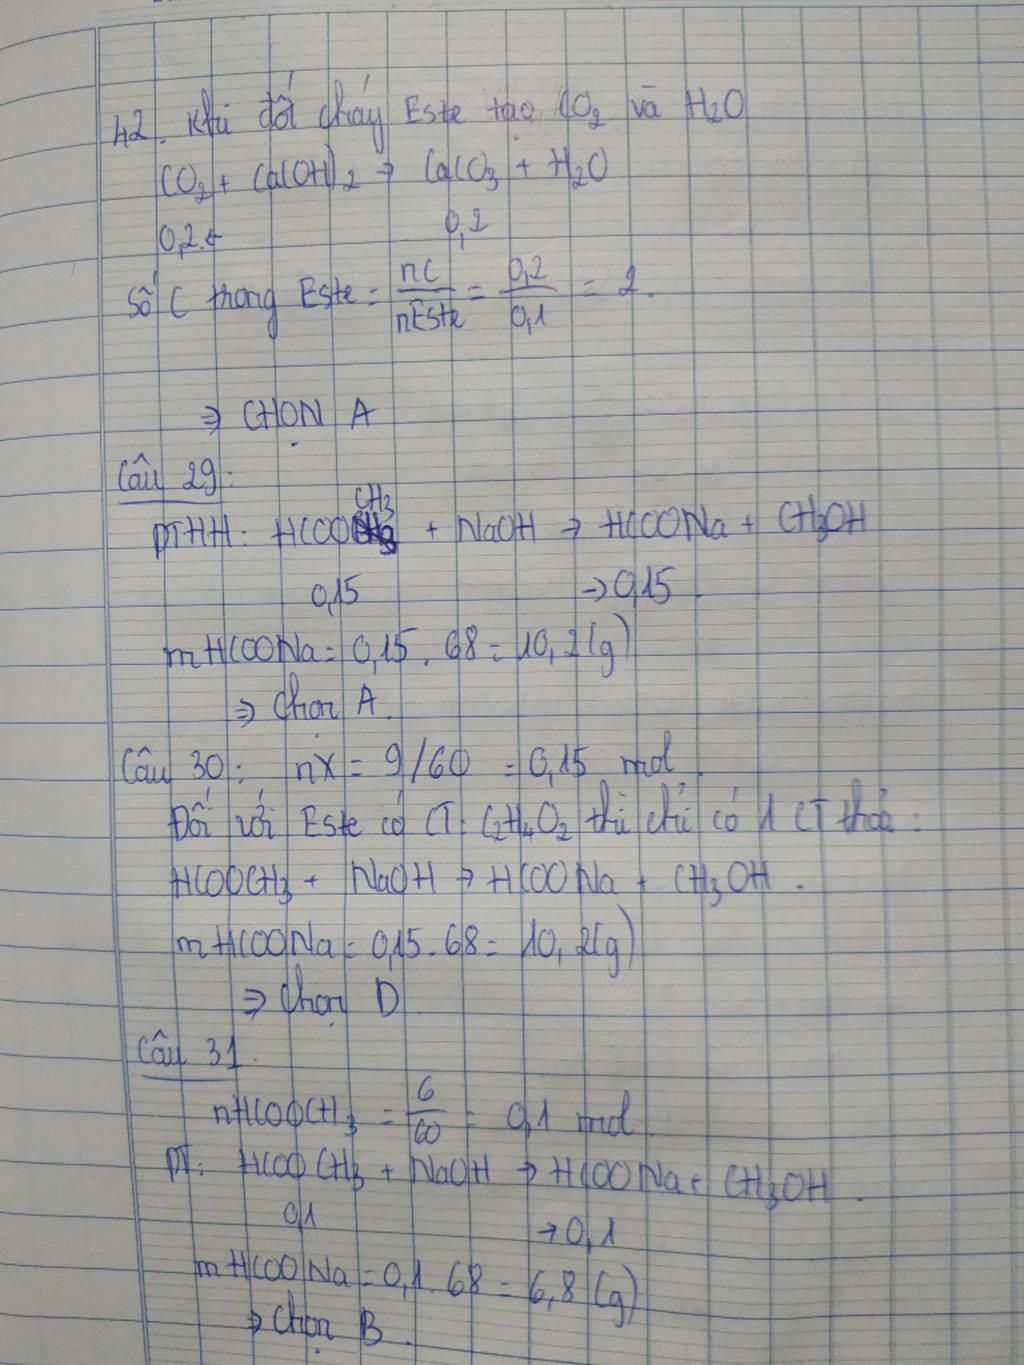 42. Khi đốt cháy Este tạo CO2 và H2O
CO2 + Ca(OH)2 → CaCO3 + H2O
0,2 ← 0,2
Số C trong Este = nC/nEste = 0,2/0,1 = 2.
⇒ CHỌN A
Câu 29:
PTHH: HCOOCH3 + NaOH → HCOONa + CH3OH
0,15 → 0,15.
mHCOONa = 0,15. 68 = 10,2(g)
⇒ Chọn A.
Câu 30: nX = 9/60 = 0,15 mol.
Đối với Este có CT: C2H4O2 thì chỉ có 1 CT thỏa:
HCOOCH3 + NaOH → HCOONa + CH3OH.
mHCOONa = 0,15. 68 = 10,2(g)
⇒ Chọn D
Câu 31.
nHCOOCH3 = 6/60 = 0,1 mol
PT: HCOOCH3 + NaOH → HCOONa + CH3OH.
0,1 → 0,1
mHCOONa = 0,1. 68 = 6,8 (g)
⇒ Chọn B.